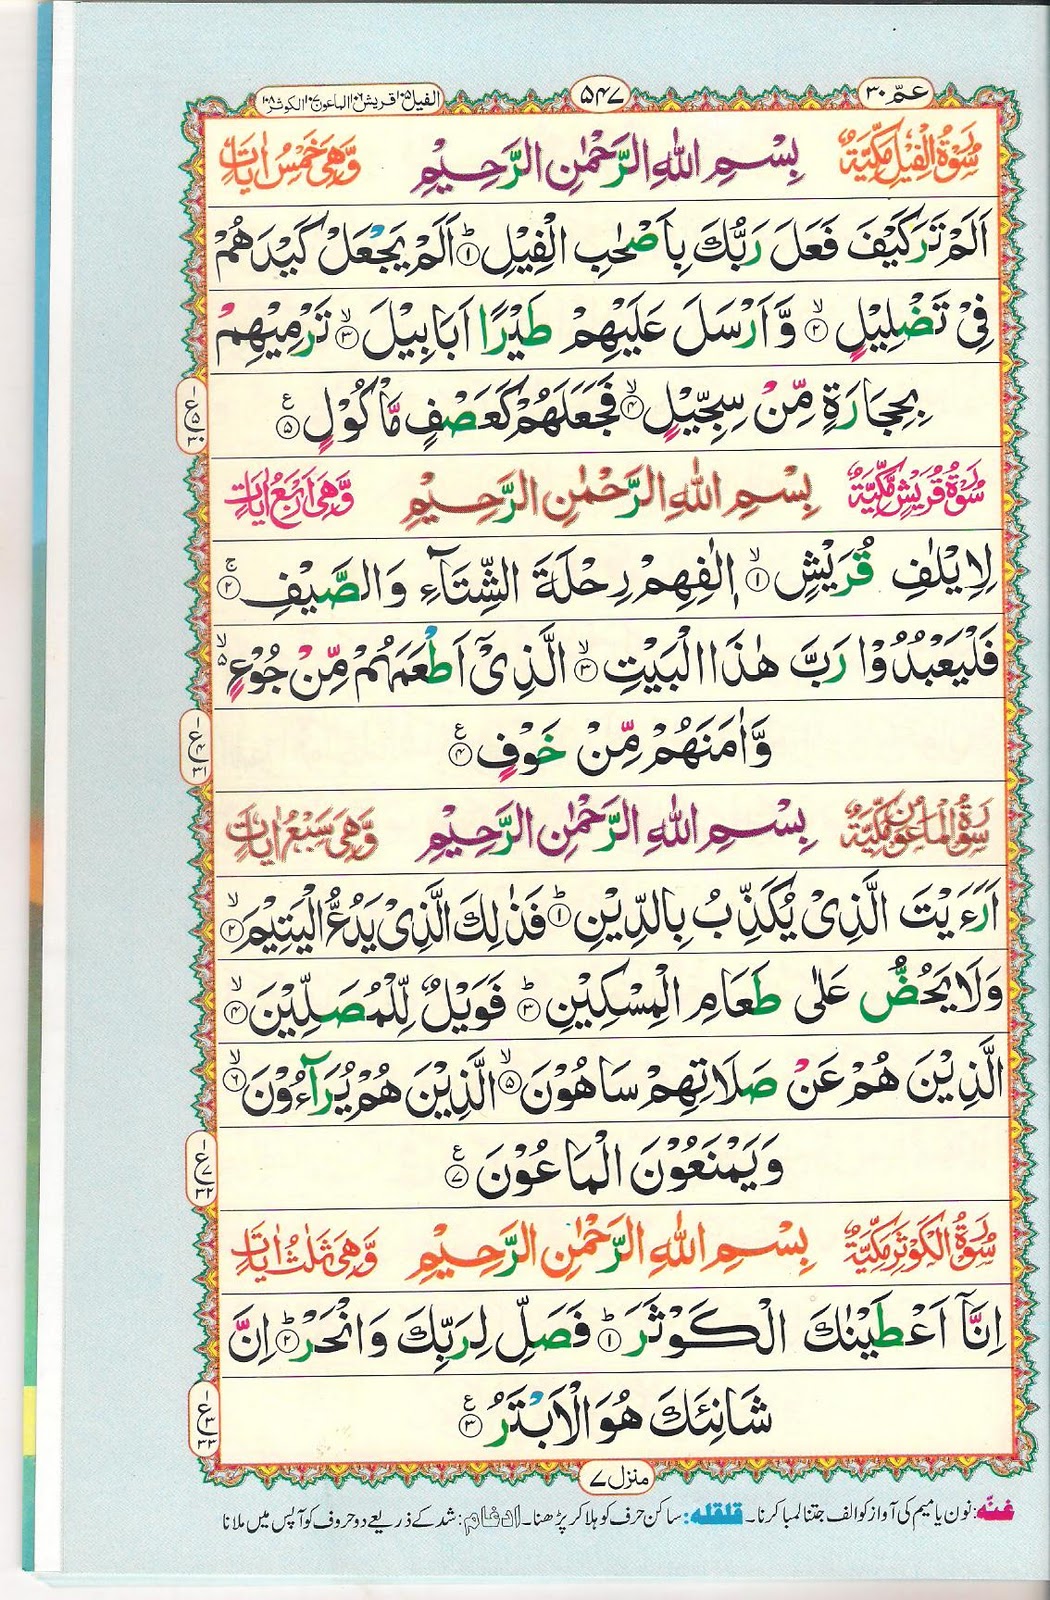 عمّ ٣٠
٥٤٧
الفيل ١٠٥ قريش ١٠٦ الماعون ١٠٧ الكوثر ١٠٨
سُوْرَةُ الْفِيْلِ مَكِّيَّةٌ بِسْمِ اللّٰهِ الرَّحْمٰنِ الرَّحِيْمِ وَّهِيَ خَمْسُ اٰيَاتٍ
اَلَمْ تَرَ كَيْفَ فَعَلَ رَبُّكَ بِاَصْحٰبِ الْفِيْلِ ۱ؕ اَلَمْ يَجْعَلْ كَيْدَهُمْ
فِيْ تَضْلِيْلٍ ۲ۙ وَّ اَرْسَلَ عَلَيْهِمْ طَيْرًا اَبَابِيْلَ ۳ۙ تَرْمِيْهِمْ
بِحِجَارَةٍ مِّنْ سِجِّيْلٍ ۴ۙ فَجَعَلَهُمْ كَعَصْفٍ مَّاْكُوْلٍ ۵ع
١ ع٥ ٣٠
سُوْرَةُ قُرَيْشٍ مَّكِّيَّةٌ بِسْمِ اللّٰهِ الرَّحْمٰنِ الرَّحِيْمِ وَّهِيَ اَرْبَعُ اٰيَاتٍ
لِاِيْلٰفِ قُرَيْشٍ ۱ۙ اٖلٰفِهِمْ رِحْلَةَ الشِّتَآءِ وَالصَّيْفِ ۲ۚ
فَلْيَعْبُدُوْا رَبَّ هٰذَا الْبَيْتِ ۳ۙ الَّذِيْٓ اَطْعَمَهُمْ مِّنْ جُوْعٍ ۵ۙ
وَّاٰمَنَهُمْ مِّنْ خَوْفٍ ۴ع
١ ع٤ ٣١
سُوْرَةُ الْمَاعُوْنَ مَكِّيَّةٌ بِسْمِ اللّٰهِ الرَّحْمٰنِ الرَّحِيْمِ وَّهِيَ سَبْعُ اٰيَاتٍ
اَرَءَيْتَ الَّذِيْ يُكَذِّبُ بِالدِّيْنِ ۱ؕ فَذٰلِكَ الَّذِيْ يَدُعُّ الْيَتِيْمَ ۲ۙ
وَلَا يَحُضُّ عَلٰى طَعَامِ الْمِسْكِيْنِ ۳ؕ فَوَيْلٌ لِّلْمُصَلِّيْنَ ۴ۙ
الَّذِيْنَ هُمْ عَنْ صَلَاتِهِمْ سَاهُوْنَ ۵ۙ الَّذِيْنَ هُمْ يُرَآءُوْنَ ۶ۙ
وَيَمْنَعُوْنَ الْمَاعُوْنَ ۷ع
١ ع٧ ٣٢
سُوْرَةُ الْكَوْثَرِ مَكِّيَّةٌ بِسْمِ اللّٰهِ الرَّحْمٰنِ الرَّحِيْمِ وَّهِيَ ثَلٰثُ اٰيَاتٍ
اِنَّآ اَعْطَيْنٰكَ الْكَوْثَرَ ۱ؕ فَصَلِّ لِرَبِّكَ وَانْحَرْ ۲ؕ اِنَّ
شَانِئَكَ هُوَ الْاَبْتَرُ ۳ع
١ ع٣ ٣٣
منزل ٧
غنّه: نون یا میم کی آواز کو الف جتنا لمبا کرنا۔ قلقله: ساکن حرف کو ہلا کر پڑھنا۔ ادغام: شد کے ذریعے دو حروف کو آپس میں ملانا